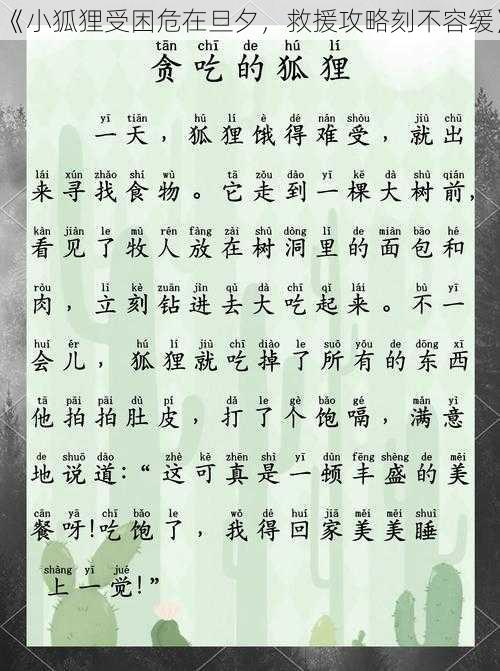 《小狐狸受困危在旦夕，救援攻略刻不容缓》
tān chī de hú lí
贪吃的狐狸
yī tiān hú lí è dé nán shòu jiù chū
一天，狐狸饿得难受，就出
lái xún zhǎo shí wù tā zǒu dào yī kē dà shù qián
来寻找食物。它走到一棵大树前，
kàn jiàn le mù rén fàng zài shù dòng lǐ de miàn bāo hé
看见了牧人放在树洞里的面包和
ròu lì kè zuān jìn qù dà chī qǐ lái bù yī
肉，立刻钻进去大吃起来。不一
huí ér hú lí jiù chī diào le suǒ yǒu de dōng xī
会儿，狐狸就吃掉了所有的东西
tā pāi pāi dù pí dǎ le gè bǎo gé mǎn yì
他拍拍肚皮，打了个饱嗝，满意
de shuō dào zhè kě zhēn shì yī dùn fēng shèng de měi
地说道：“这可真是一顿丰盛的美
cān yā chī bǎo le wǒ dé huí jiā měi měi shuì
餐呀！吃饱了，我得回家美美睡
shàng yī jué
上一觉！”